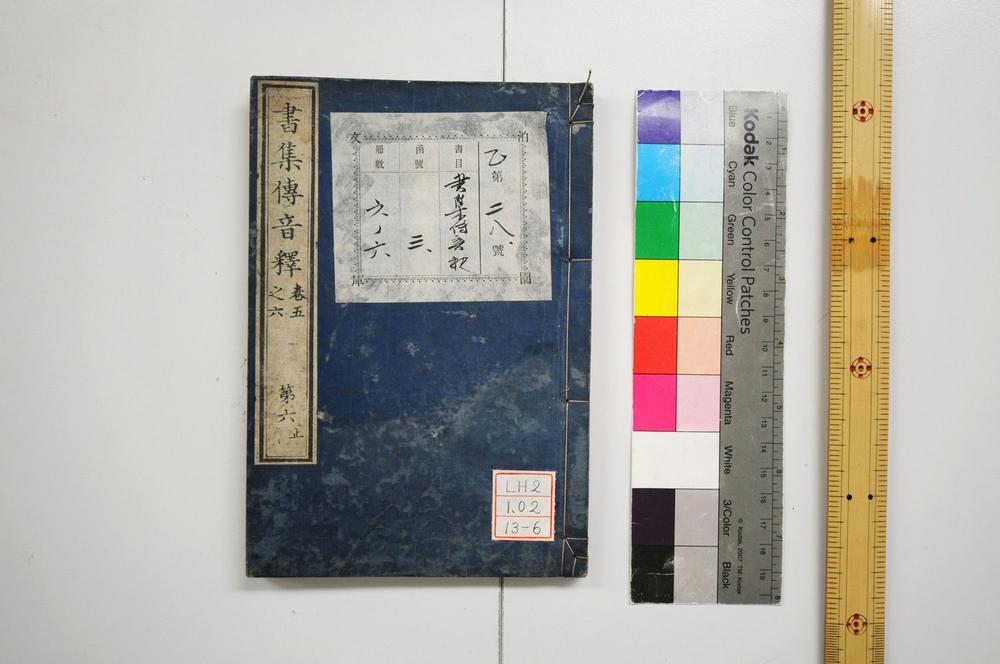 書集傳音釋
卷五
之六
第六
止
泊園
文庫
乙第二八、號
書目
書集傳音釈
函號
三、
冊數
六ノ六
LH2
1.02
13-6
Kodak Color Control Patches
Blue
Cyan
Green
Yellow
Red
Magenta
White
3/Color
Black
© Kodak, 2007 TM: Kodak